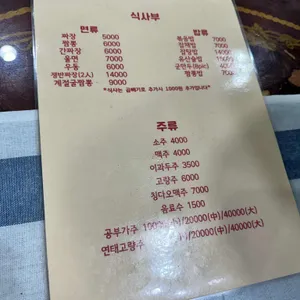 식사부
면류
짜장 5000
짬뽕 6000
간짜장 6000
울면 7000
우동 6000
쟁반짜장(2人) 14000
계절굴짬뽕 9000
밥류
볶음밥 7000
잡채밥
잡탕밥
유산슬밥
군만두
짬뽕밥 7000
*식사는 곱빼기로 추가시 1000원 추가입니다*
주류
소주 4000
맥주 4000
이과두주 3500
고량주 6000
칭다오맥주 7000
음료수 1500
공부가주 /20000(中)/40000(大)
연태고량주 /20000(中)/40000(大)